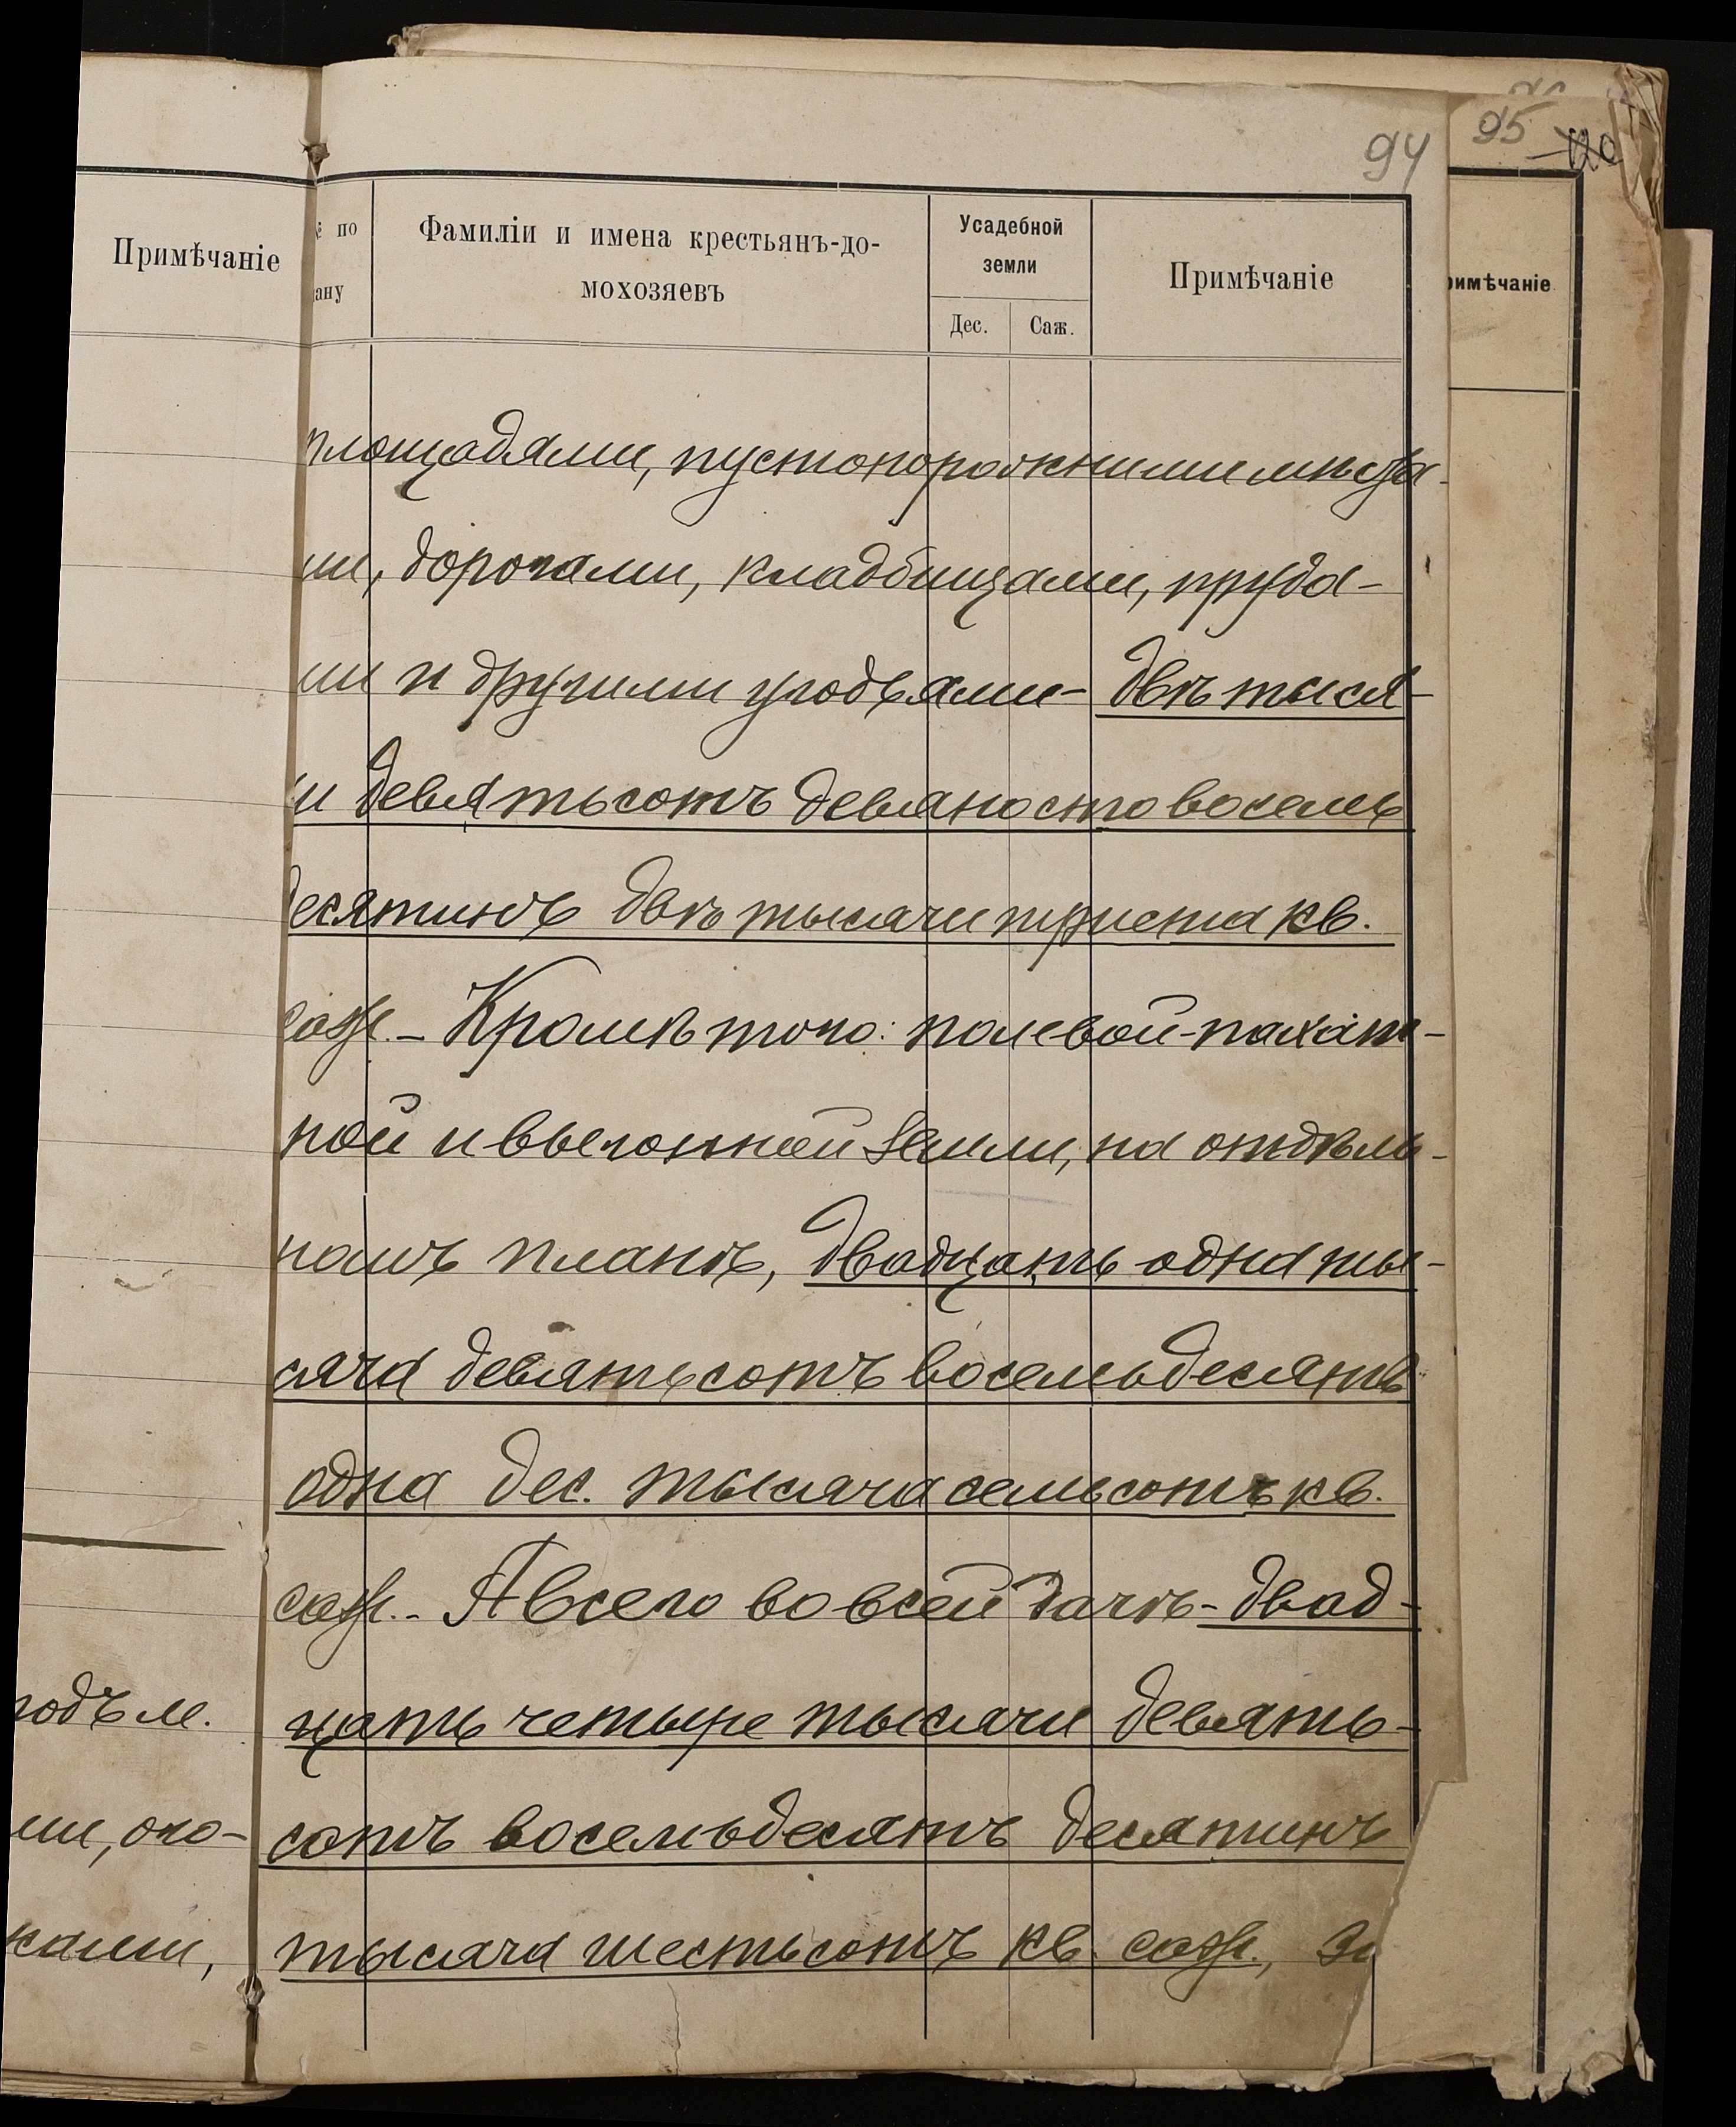 94
95
Примѣчаніе
по
ану
Фамиліи и имена крестьянъ-до-
мохозяевъ
Усадебной
земли
Дес.
Саж.
Примѣчаніе
римѣчаніе
площадями, пустопорожними мѣста-
ми, дорогами, кладбищами, пруда-
ми и другими угодьями- двѣ тыся-
чи девятьсотъ девяносто восемь
десятинъ двѣ тысячи триста кв.
саж. - Кромѣ того: полевой-пахат-
ной и выгонной земли, на отдѣль-
номъ планѣ, двадцать одна ты-
сяча девятьсотъ восемьдесятъ
одна дес. тысяча семьсотъ кв.
саж. - А всего во всей дачѣ - двад-
цать четыре тысячи девять-
сотъ восемьдесятъ десятинъ
тысяча шестьсотъ кв. саж., за
ми, око-
ками,